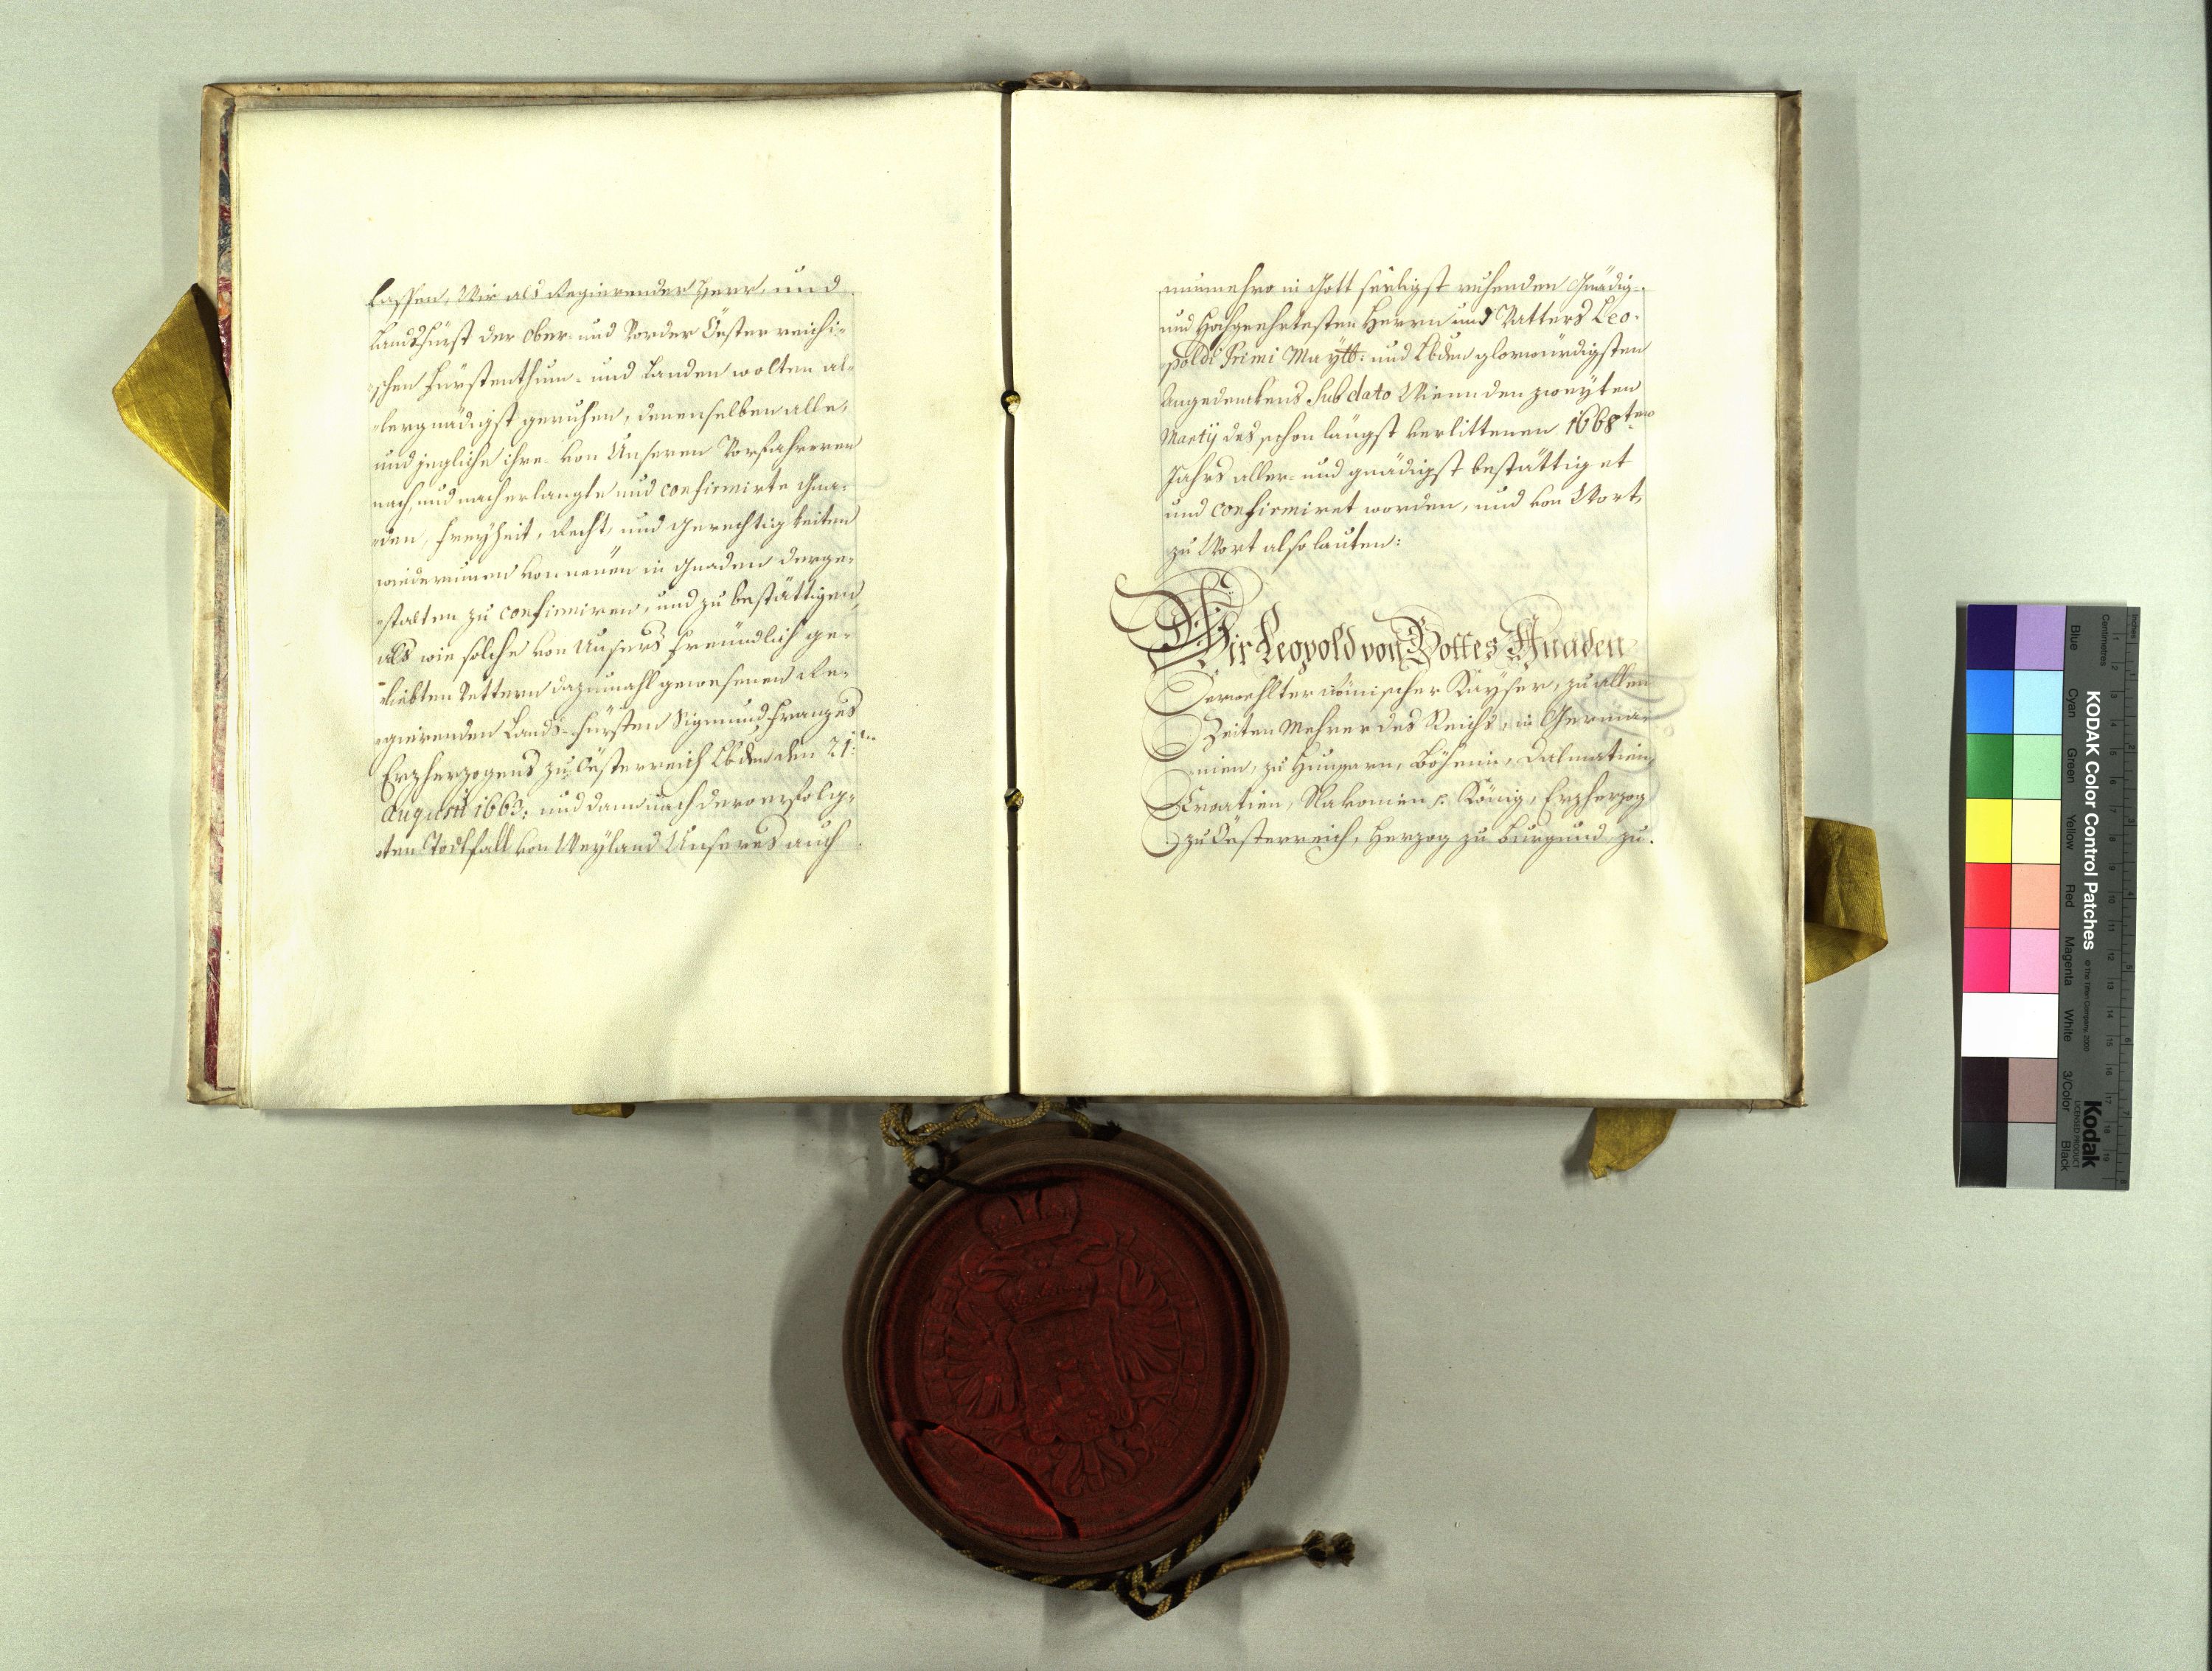 lassen, Wir als Regierender Herr, und
Landsfürst der Ober- und Vorder Öesterreichi-
schen Fürstenthum- und Landen wolten al-
lergnädigst geruhen, denenselben alle,
und jegliche ihre von Unseren Vorfahreren
nach, und nach erlangte und confirmirte Gna-
den, Freyheit, Recht, und Gerechtigkeiten
wiederumen von neüen in Gnaden derge-
stalten zu confirmiren, und zu bestättigen,
als wie solche von Unsers freündlich ge-
liebten Vettern dazumahl gewesenen Re-
gierenden Lands-Fürsten Sigmund Franzens
Erzherzogens zu Öesterreich Lbden den 21:ten
Augusti 1663: und dann nach dero erfolg-
ten Todtfall von Weyland Unseres auch
nunmehro in Gott seeligst ruhenden Gnädig-
und Hochgeehrtesten Herrn und Vatters Leo-
poldi Primi Maytt: und Lbden glorwürdigsten
Angedenckens Sub dato Wienn den zweyten
Martij des schon längst verlittenen 1668ten
Jahrs aller- und gnädigst bestättiget
und confirmiret worden, und von Wort,
zu Wort also lauten:
Wir Leopold von Gottes Gnaden
Erwehlter römischer Kayser, zu allen
Zeiten Mehrer des Reichs, in Germa-
nien, zu Hungarn, Böheim, Dalmatien,
Croatien, Slavonien p. König, Erzherzog
zu Öesterreich, Herzog zu Burgund zu
KODAK Color Control Patches © The Tiffen Company, 2000
Kodak
LICENSED PRODUCT
Inches
Centimetres
Blue Cyan Green Yellow Red Magenta White 3/Color Black